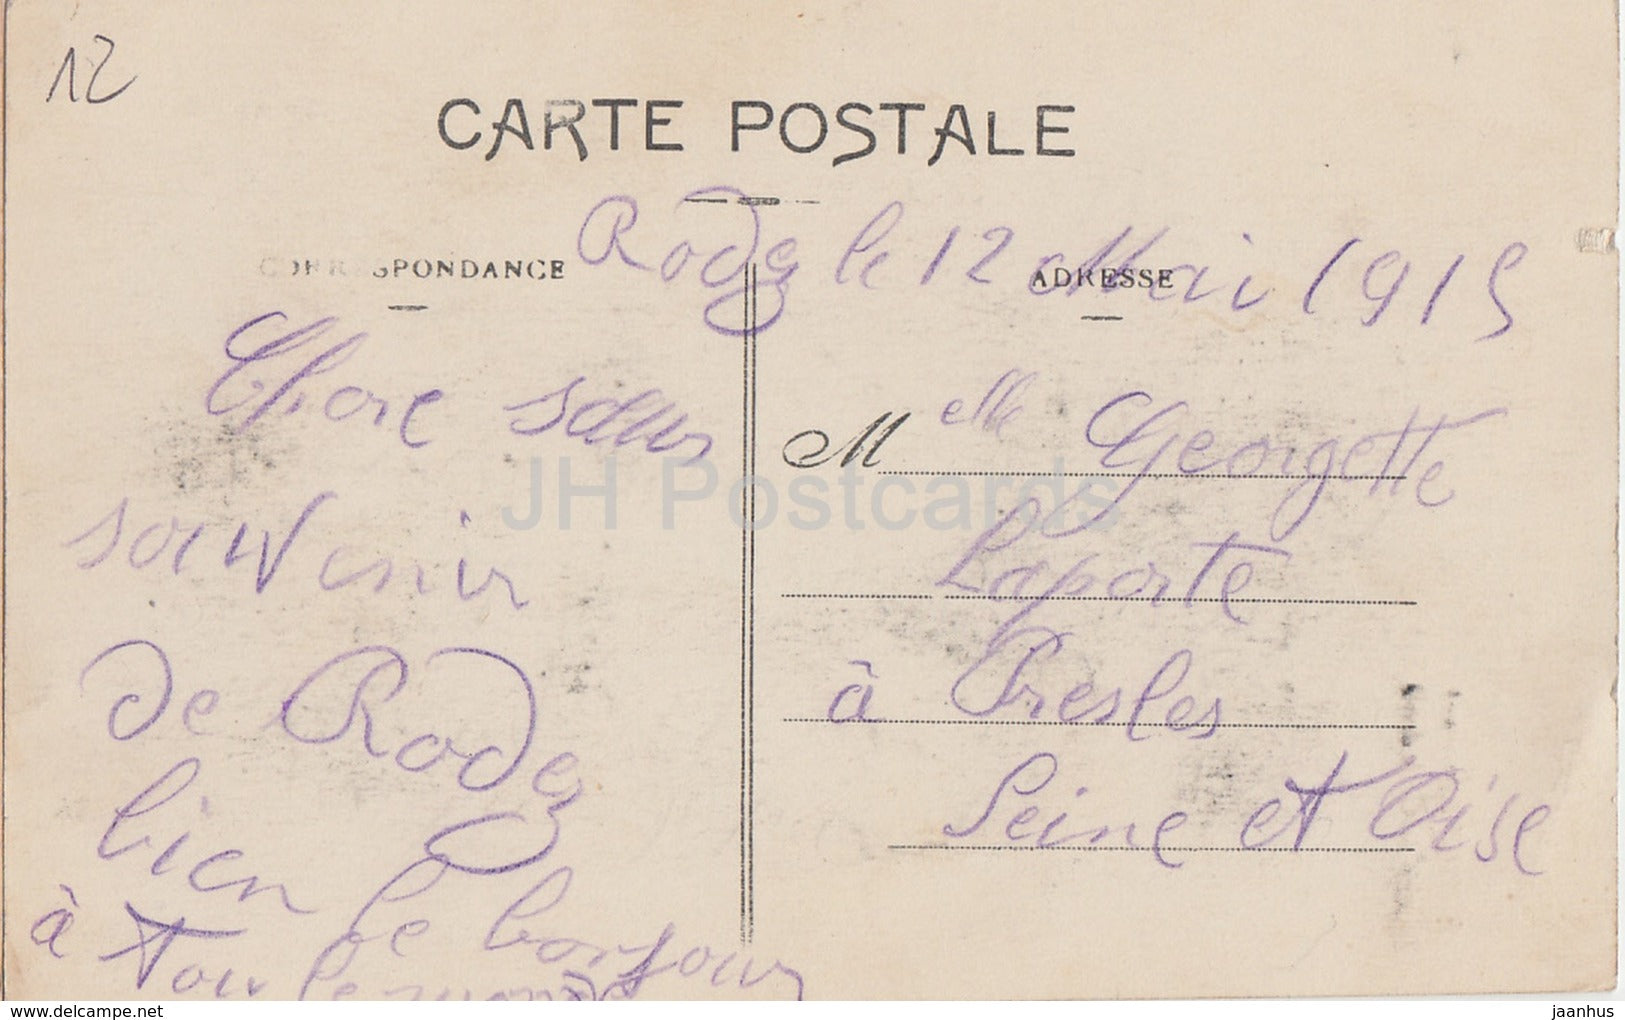 12
CARTE POSTALE
CORRESPONDANCE
ADRESSE
Rodez le 12 Mai 1915
Chere sœur
souvenir
de Rodez
bien le bonjour
à tou le monde
M elle Georgette
Laporte
à Presles
Seine et Oise
JH Postcards
delcampe.net
jaanhus